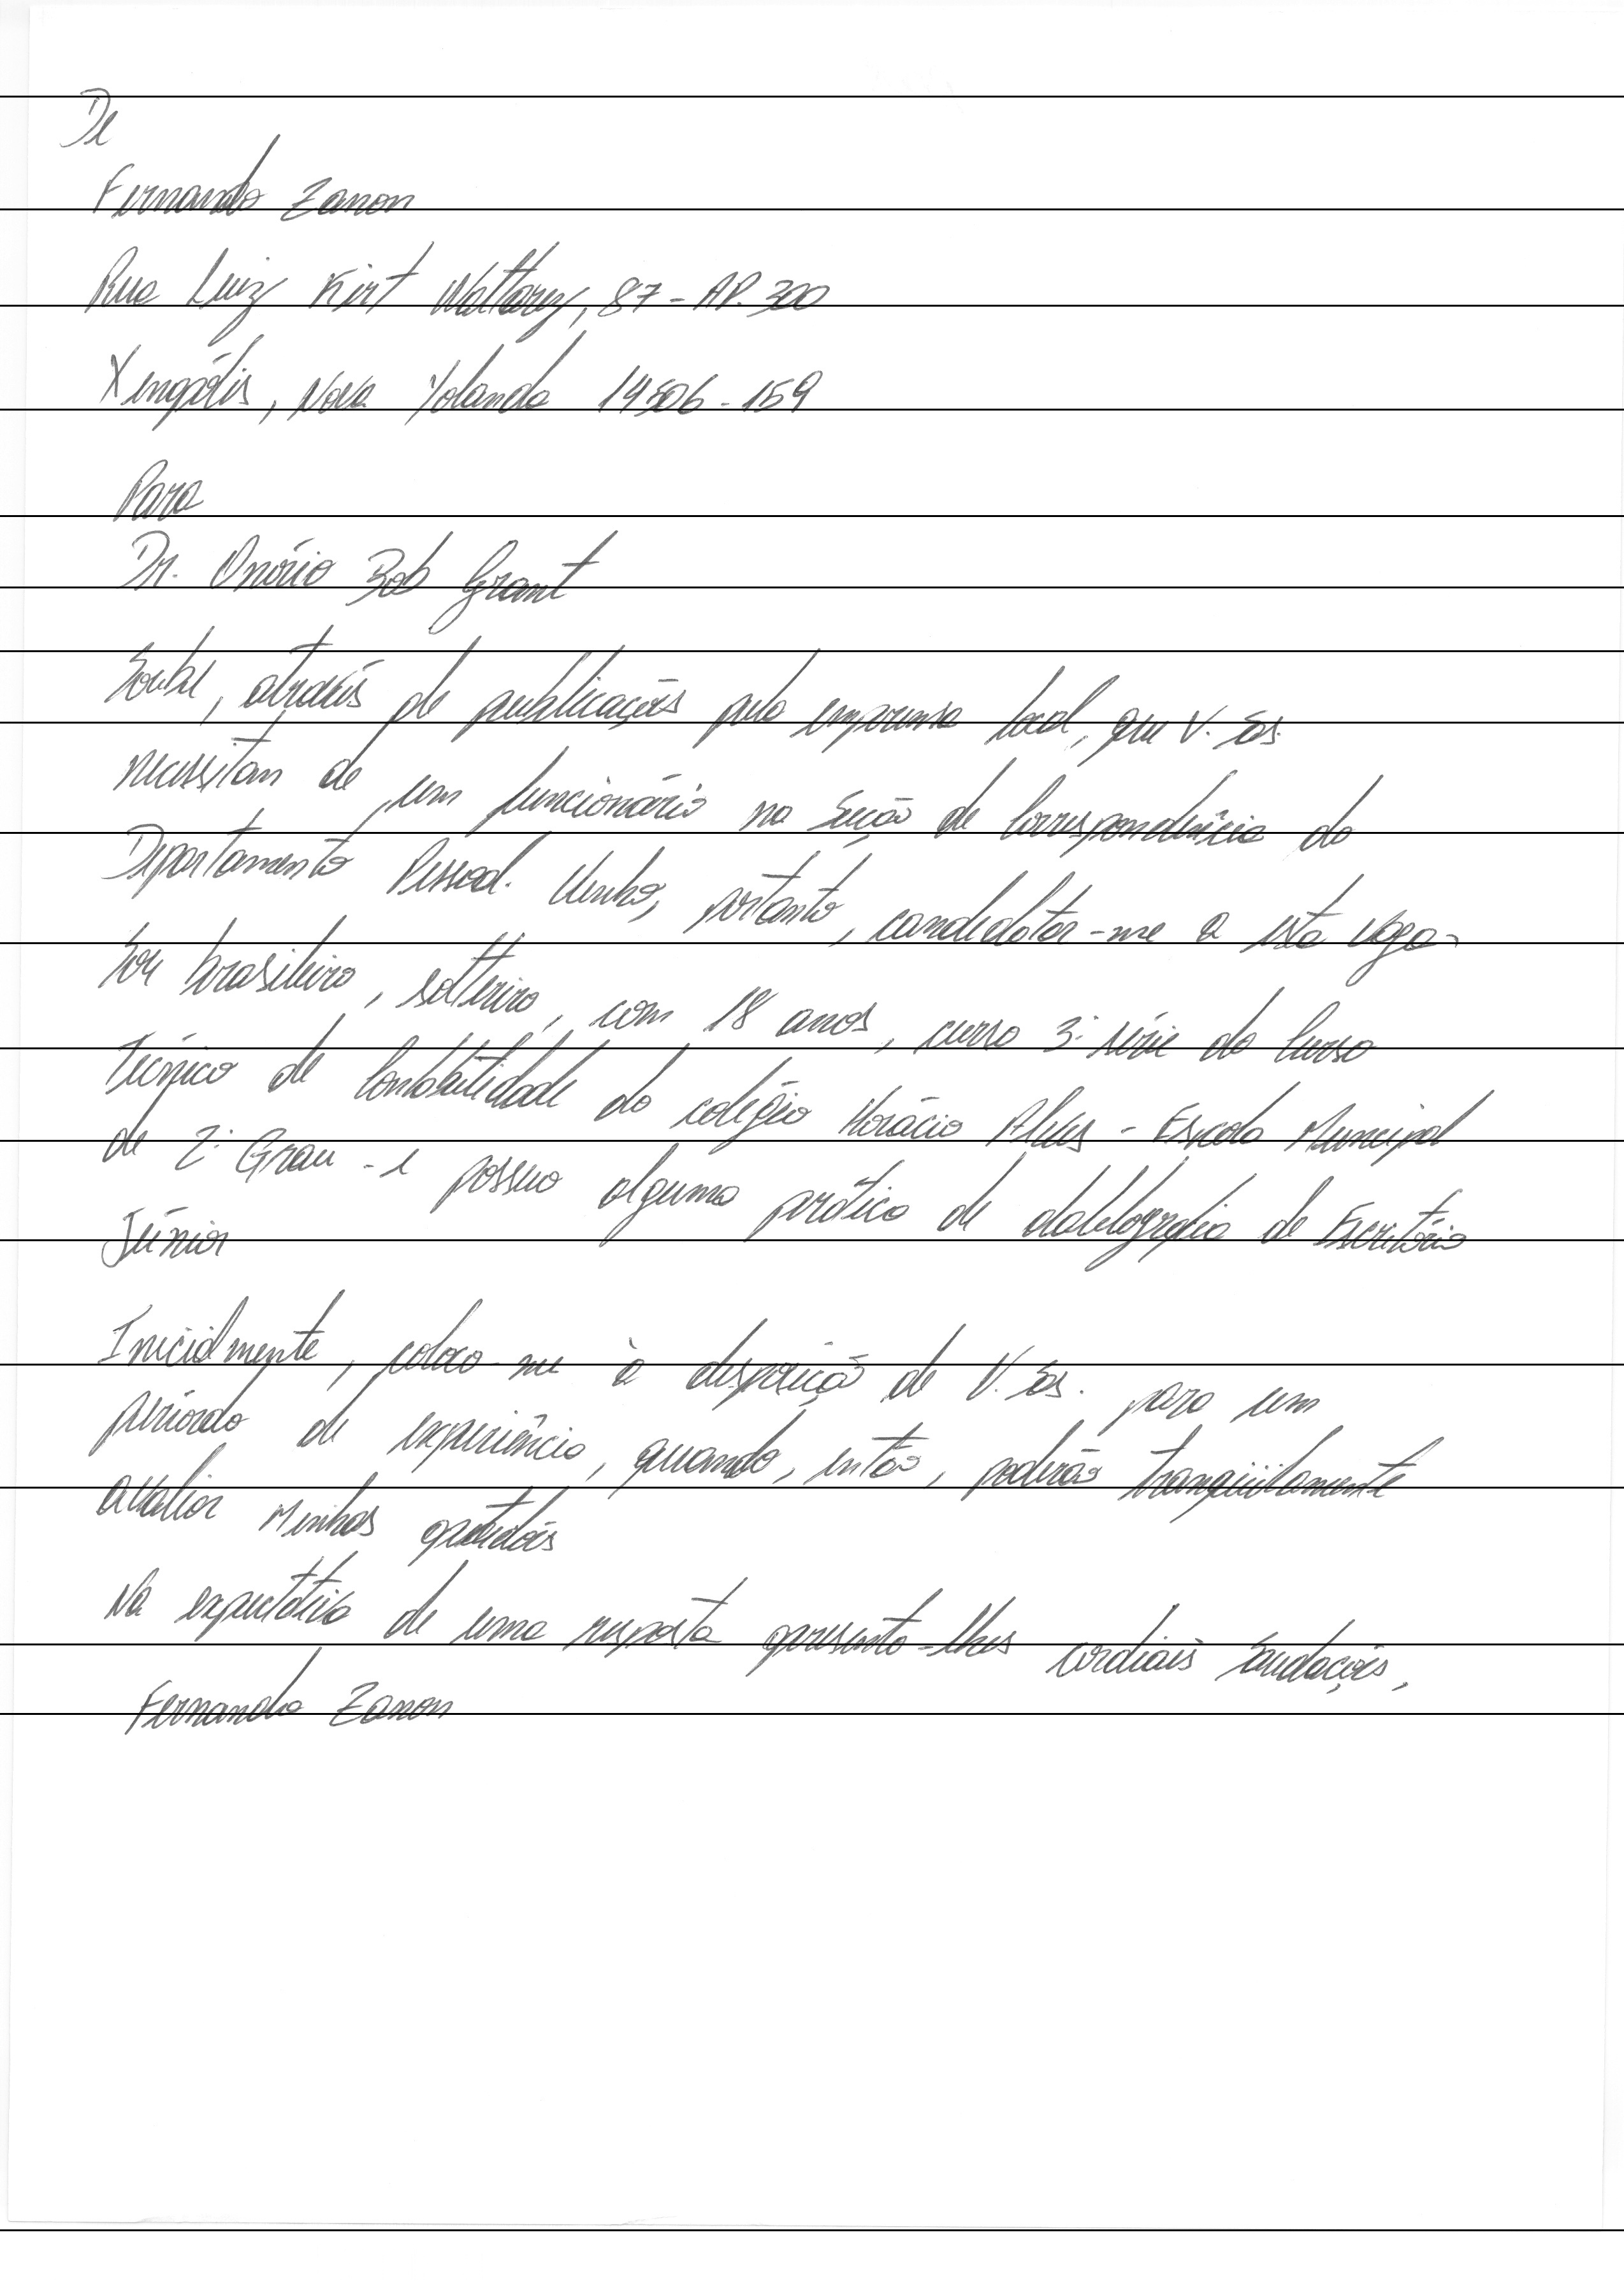 De
Fernando Zanon
Rua Luiz Kirt Wattarez, 87 - AP. 300
Xengólis, Nova Yolanda 14506-159
Para
Dr. Onório Bob Grant
Soube, através de publicações pela imprensa local, que V. Sas.
necessitam de um funcionário na Seção de Correspondência do
Departamento Pessoal. Venho, portanto, candidatar-me a esta vaga.
Sou brasileiro, solteiro, com 18 anos, curso 3ª série do Curso
Técnico de Contabilidade do colégio Horácio Alves - Escola Muncipal
de 2º Grau - e possuo alguma prática de datilografia de Escritório
Júnior
Inicialmente, coloco-me à disposição de V. Sas. para um
período de experiência, quando, então, poderão tranqüilamente
avaliar Minhas aptidões
Na expectativa de uma resposta apresento-lhes cordiais Saudações,
Fernando Zanon